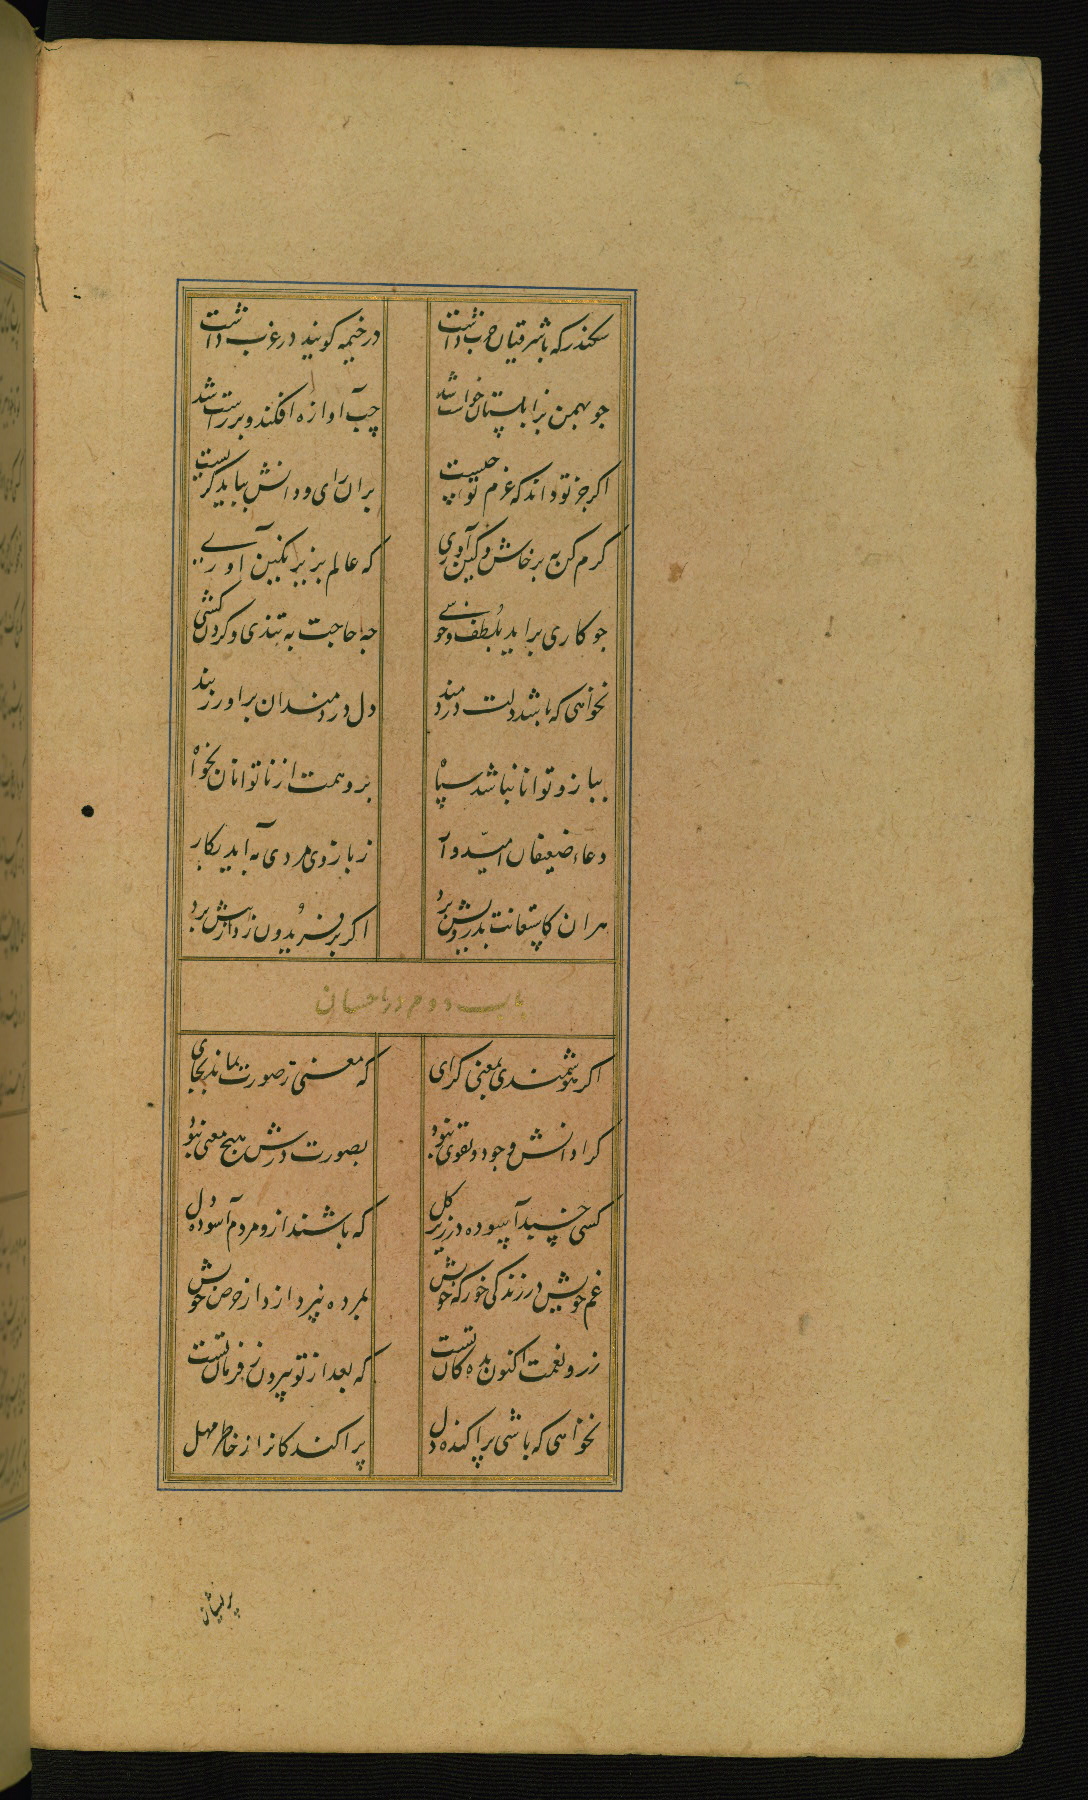 سکندر که با شرقیان حرب داشت در خیمه کویند در غرب داشت
جو بهمن بزابلستان خواست شد چپ آوازه افکند و بر راست شد
اکر جز تو داند که عزم تو چیست بران رای و دانش بباید کریست
کرم کن نه برخاش و کین آوری که عالم بزیر نکین اوری
جو کاری براید بلطف و خوشی جه حاجت به تندی و کردن کشی
نخواهی که باشد دلت دردمند دل دردمندان براور ز بند
ببازو توانا نباشد سپاه برو همت از ناتوانان بخواه
دعاء ضعیفان امیدوار ز بازوی مردی به آید بکار
هران کاستعانت بدرویش برد اکر بر فریدون زد از پیش برد
باب دوم در احسان
اکر هوشمندی بمعنی کرای که معنی ز صورت بماند بجای
کرا دانش و جود و تقوی نبود بصورت درش هیچ معنی نبود
کسی خسبد آسوده در زیر کل که باشند ازو مردم آسوده دل
غم خویش در زندکی خور که خویش بمرده نپردازد از حرص خویش
زر و نعمت اکنون بده کان تست که بعد از تو بیرون ز فرمان تست
نخواهی که باشی پراکنده دل پراکندکانرا ز خاطر مهل
پریشان